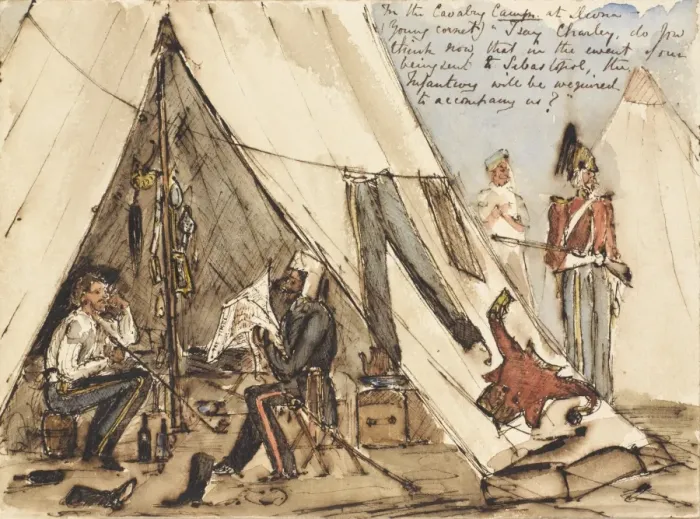 In the Cavalry Camp. at Devna -
(Young cornet) "I say Charley, do you
think now, that in the event of our
being sent to Sebastopol, the
Infantwy will be wequired
to accompany us?"